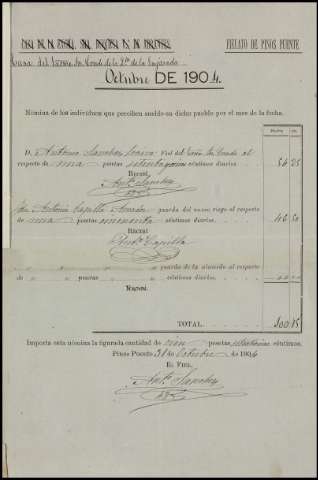 FIELATO DE PINOS PUENTE
Casa del Excmo. Sr. Conde de la
Octubre DE 1904.
Nómina de los individuos que perciben sueldo en dicho pueblo por el mes de la fecha.
D. Antonio Sanchez Fiel del Conde al
respecto de una pesetas setenta y cinco céntimos diarios. 54 25
Recibí,
Ant.º Sanchez
Antonio Capilla guarda del nuevo riego al respecto
de una pesetas céntimos diarios. 46 50
Recibí
Ant.º Capilla
guarda de la alameda al respecto
de " " pesetas " " céntimos diarios.
Recibí
TOTAL. 100 75
Importa esta nómina la figurada cantidad de cien pesetas setenta y cinco céntimos.
Pinos Puente 31 de Octubre de 1904
EL FIEL,
Ant.º Sanchez